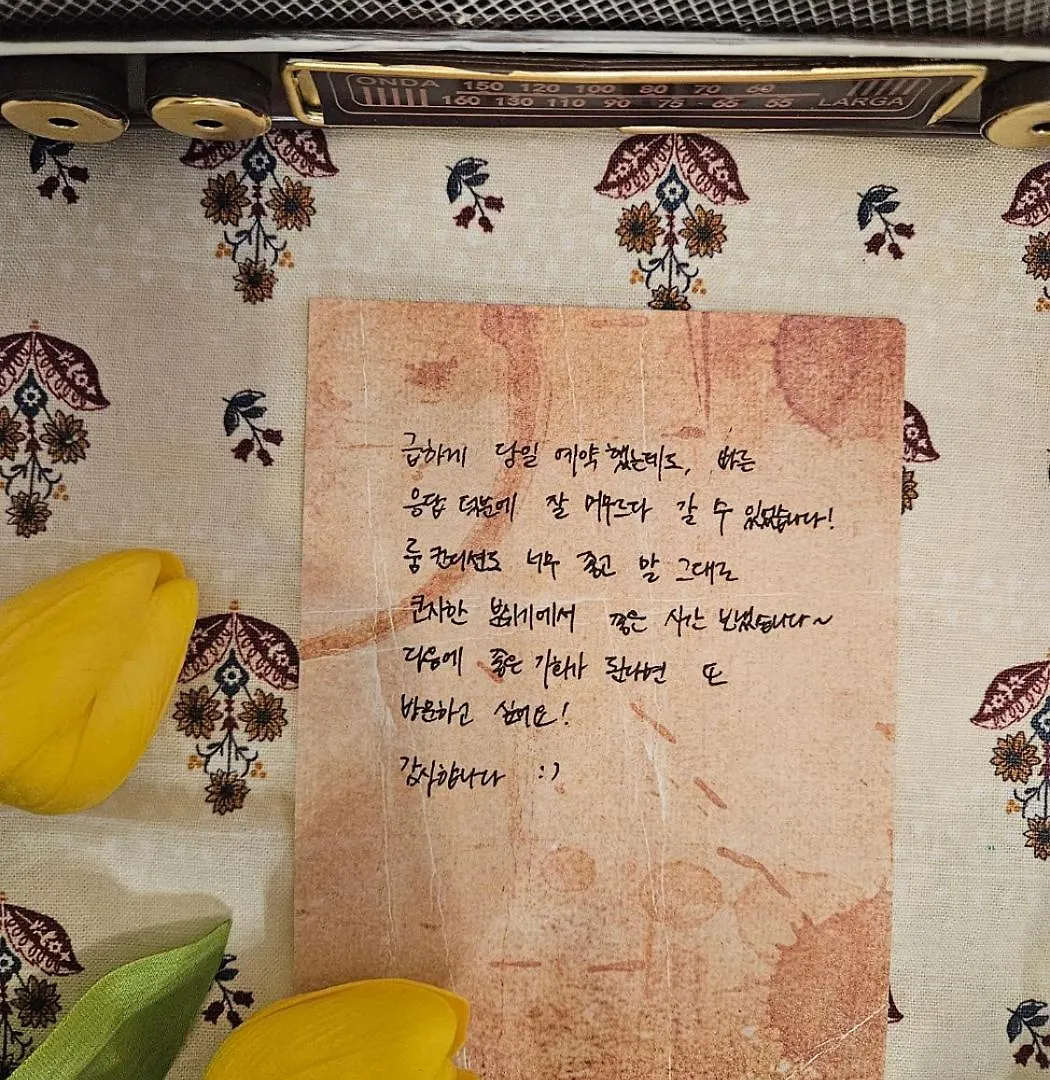 ONDA 150 120 100 80 70 60
160 130 110 90 75 65 55 LARGA
급하게 당일 예약했는데도, 빠른
응답 덕분에 잘 머무르다 갈 수 있었습니다!
룸 컨디션도 너무 좋고 말 그대로
큰자한 분위기에서 좋은 시간 보냈습니다~
다음에 좋은 기회가 된다면 또
방문하고 싶어요!
감사합니다 :)